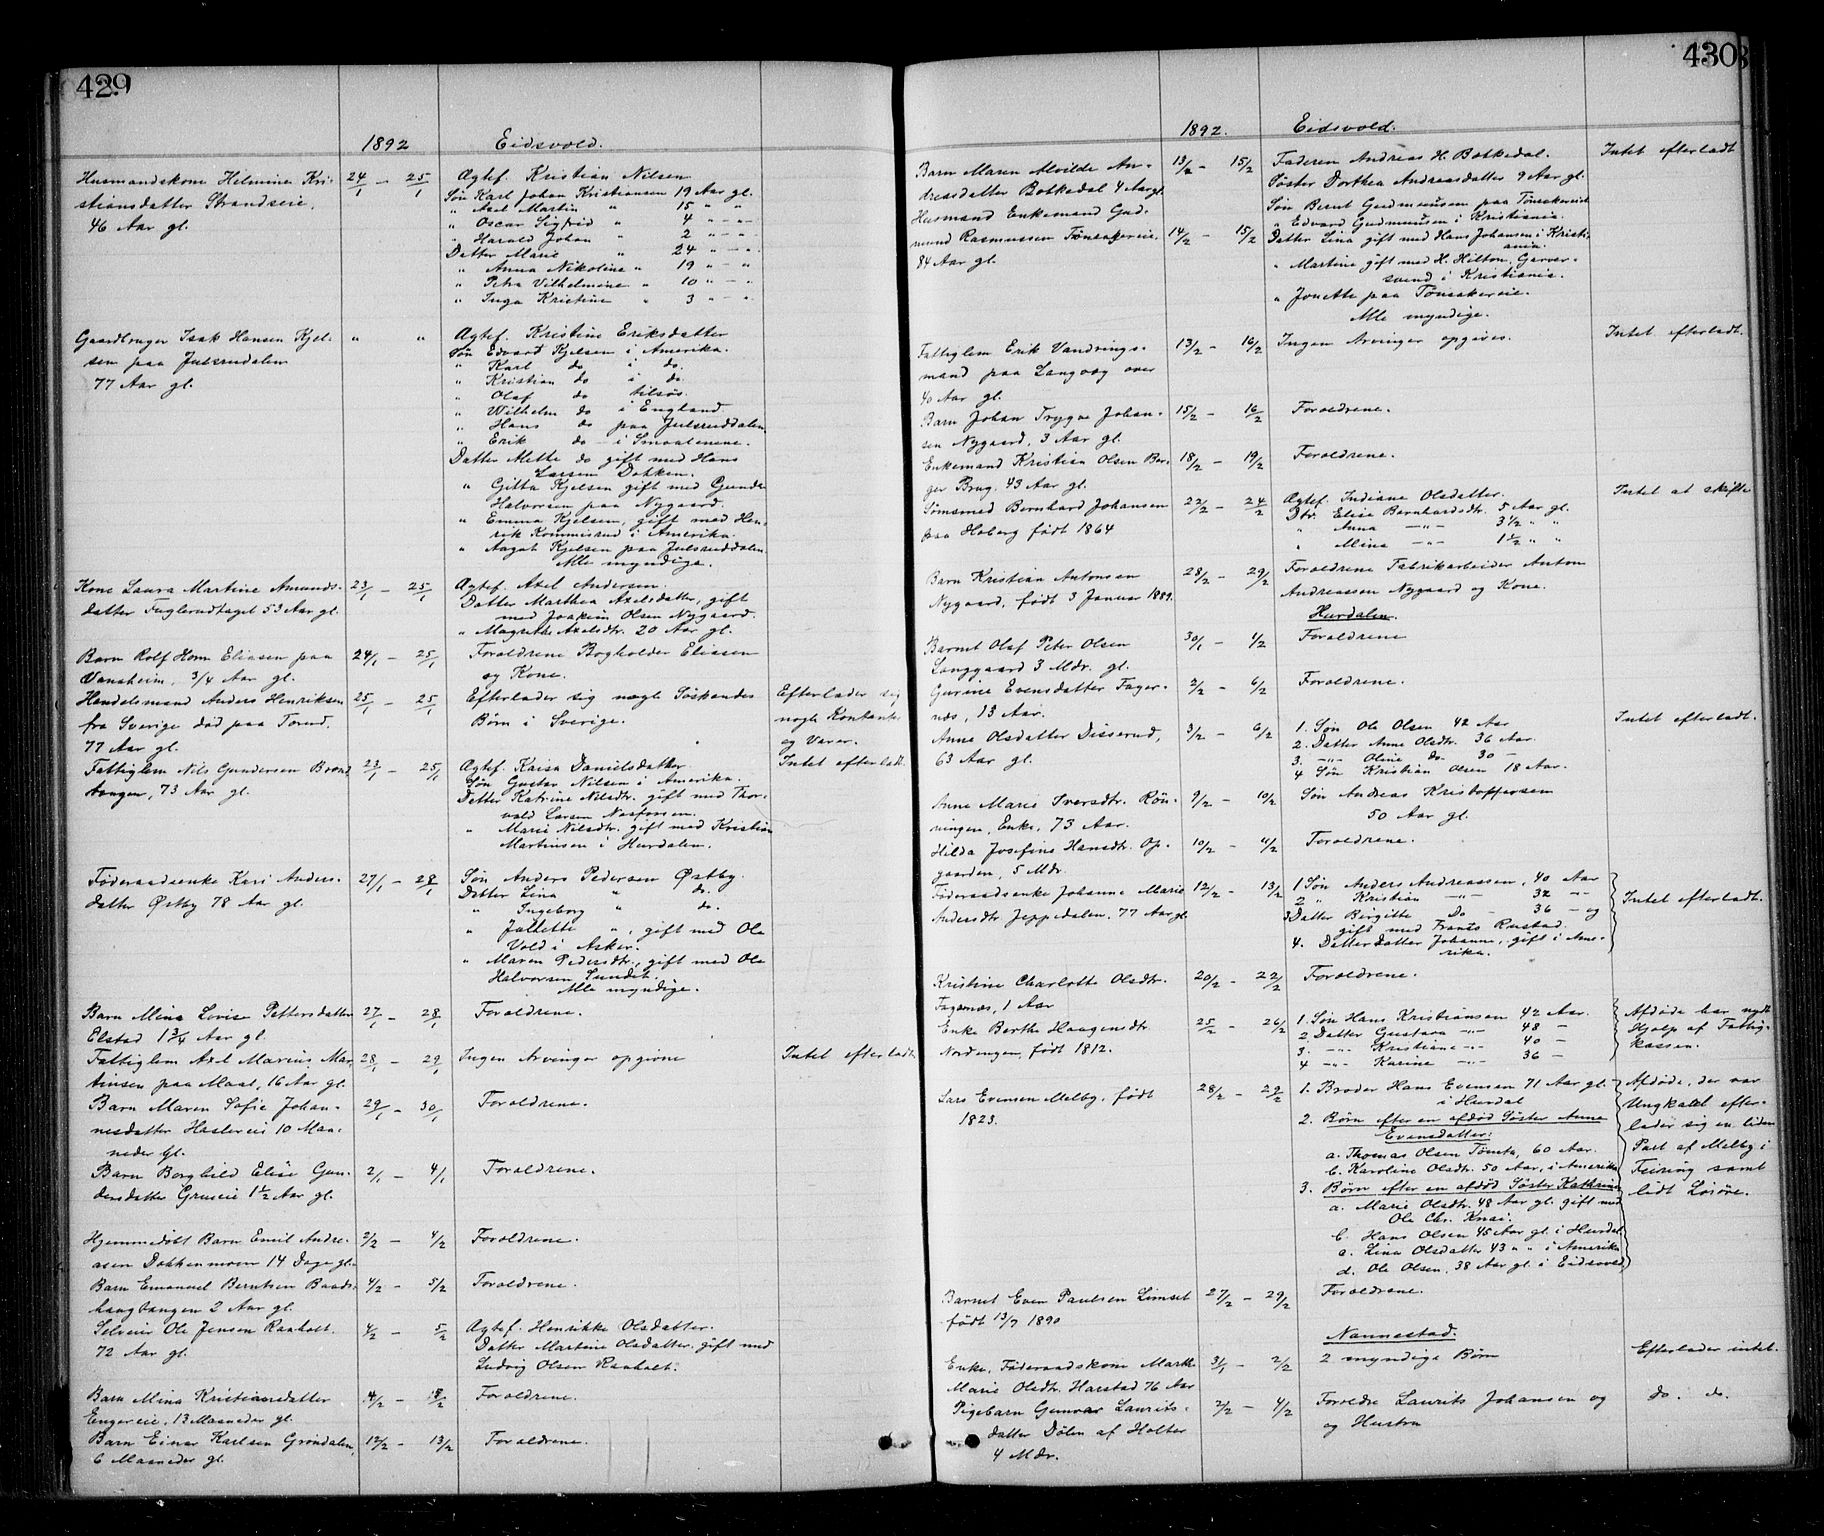 429
1892 Eidsvold.
Husmandskone Helmine Kri- 24/1 — 25/1 Ægtef. Kristian Nilsen
stiansdatter Strandseie, Søn Karl Johan Kristiansen 19 Aar gl.
46 Aar gl. " Axel Martin " 15 " "
" Oscar Sigfrid " 4 " - "
" Harald Johan " 2 " - "
Datter Marie " 24 " - "
" Anna Nikoline " 19 " - "
" Petra Vilhelmine " 10 " - "
" Inga Kristine " 3 " - "
Gaardbruger Isak Hansen Kjel- " " Ægtef. Kristine Eriksdatter
sen paa Julsruddalen Søn Edvard Kjelsen i Amerika.
77 Aar gl. " Karl do i do.
" Kristian do i do.
" Olaf do tilsøs.
" Wilhelm do i England
" Hans do paa Julsruddalen
" Erik do - i Smaalenene.
Datter Mette do gift med Hans
Larsen Dokken.
" Gitta Kjelsen gift med Gunder
Halvorsen paa Nygaard.
" Emma Kjelsen, gift med Hen-
rik Kommisrud i Amerika.
" Aagot Kjelsen paa Julsruddalen.
Alle myndige.
Kone Laura Martine Amunds- 23/1 — 25/1 Ægtef. Axel Andersen.
datter Fuglerudtaget 53 Aar gl. Datter Marthea Axelsdatter, gift
med Joakim Olsen Nygaard.
" Magrethe Axelsdtr. 20 Aar gl.
Barn Rolf Horn Eliasen paa 24/1 — 25/1 Forældrene Bogholder Eliasen
Vansheim, 3/4 Aar gl. og Kone.
Handelsmand Anders Henriksen 25/1 — 25/1 Efterlader sig nogle Søskendes Efterlader sig
fra Sverige død paa Torud, Børn i Sverige. nogle Kontanter
77 Aar gl. og Varer.
Fattiglem Nils Gundersen Brænd 23/1 — 25/1 Ægtef. Kaisa Danielsdatter Intet efterladt.
bangen, 73 Aar gl. Søn Gustav Nilsen i Amerika.
Datter Katrine Nilsdtr. gift med Thor-
vald Larsen Næsforsen.
" Marie Nilsdtr. gift med Kristian
Martinsen i Hurdalen.
Føderaadsenke Kari Anders- 27/1 — 28/1 Søn Anders Pedersen Østby.
datter Østby 78 Aar gl. Datter Lina " do.
" Ingeborg " do.
" Jullette ", gift med Ole
Vold i Asker.
" Maren Pedersdtr., gift med Ole
Halvorsen Sundet.
Alle myndige.
Barn Mina Lovise Pettersdatter 27/1 — 28/1 Forældrene.
Elstad 1 3/4 Aar gl.
Fattiglem Axel Marius Mar- 28/1 — 29/1 Ingen Arvinger opgivne Intet efterladt
tinsen paa Maal, 16 Aar gl.
Barn Maren Sofie Johan- 29/1 — 30/1 Forældrene.
nesdatter Haslereie 10 Maa-
neder gl.
Barn Borghild Elise Gun- 2/1 — 4/1 Forældrene.
dersdatter Grueeie 1 1/2 Aar gl.
Hjemmedøbt Barn Emil Andre- 2/2 — 4/2 Forældrene.
asen Dokkenmoen 14 Dage gl.
Barn Emanuel Berntsen Baads- 4/2 — 5/2 Forældrene.
haugbangen 2 Aar gl.
Selveier Ole Jensen Raaholt. 4/2 — 5/2 Ægtef. Henrikke Olsdatter.
72 Aar gl. Datter Martine Olsdatter. gift med
Ludvig Olsen Raaholt.
Barn Mina Kristiansdatter 4/2 — Forældrene.
Engereie, 13 Maaneder gl.
Barn Einar Karlsen Grøndalen, 12/2 — 13/2 Forældrene.
6 Maaneder gl.
430
1892. Eidsvold.
Barn Maren Alvilde An- 13/2 — 15/2 Faderen Andreas H. Botkedal. Intet efterladt
dreasdatter Botkedal 4 Aar gl. Søster Dorthea Andreasdatter 9 Aar gl.
Husmand Enkemand Gud- Søn Bernt Gudmunsen paa Tønsakereie
mund Rasmussen Tønsakereie, 14/2 — 15/2 " Edvard Gudmunsen i Kristiania.
84 Aar gl. Datter Lina gift med Hans Johansen i Kristi-
ania.
" Martine gift med H. Hilton, Garver-
svend i Kristiania.
" Jonette paa Tønsakereie.
Alle myndige.
Fattiglem Erik Vandrings- 13/2 — 16/2 Ingen Arvinger opgives. Intet efterladt.
mand paa Langvæg over
40 Aar gl.
Barn Johan Trygve Johan- 15/2 — 16/2 Forældrene.
sen Nygaard, 3 Aar gl.
Enkemand Kristian Olsen Ber- 18/2 — 19/2 Forældrene.
ger Brug. 43 Aar gl.
Tømsmed Bernhard Johansen 22/2 — 24/2 Ægtef. Indiane Olsdatter. Intet at skifte
paa Hoberg født 1864 Dtr. Elise Bernhardsdtr. 5 Aar gl.
" Anna —"— 3 1/2 " "
" Mina —"— 1 1/2 " "
Barn Kristian Antonsen 28/2 — 29/2 Forældrene Fabrikarbeider Anton
Nygaard, født 3 Januar 1889. Andreassen Nygaard og Kone.
Hurdalen.
Barnet Olaf Peter Olsen 30/1 — 1/2 Forældrene
Langgaard 3 Mdr. gl.
Gurine Evensdatter Fager- 2/2 — 6/2 Forældrene.
næs, 13 Aar.
Anne Olsdatter Disserud, 3/2 — 6/2 1. Søn Ole Olsen 42 Aar Intet efterladt.
63 Aar gl. 2. Datter Anne Olsdtr. 36 Aar.
3. —"— Oline do. 30 —
4 Søn Kristian Olsen 18 Aar.
Anne Marie Iversdtr. Røn- 9/2 — 10/2 Søn Andreas Kristoffersen
ningen, Enke, 73 Aar. 50 Aar gl.
Hilda Josefine Hansdtr. Op- 10/2 — 11/2 Forældrene.
gaarden, 5 Mdr.
Føderaadsenke Johanne Marie 12/2 — 13/2 1 Søn Anders Andreassen, 40 Aar Intet efterladt.
Andersdtr Jeppedalen, 77 Aar gl 2 " Kristian —"— 32 "-
3 Datter Birgitte Do - 36 - og
gift med Frants Rustad.
4. Datterdatter Johanne, gift i Ame-
rika.
Kristine Charlotte Olsdtr. 20/2 — 22/2 Forældrene.
Fagernæs, 1 Aar
Enke Berthe Haagensdtr. 25/2 — 26/2 1. Søn Hans Kristiansen 42 Aar. Afdøde har nydt
Nordengen, født 1812. 2. Datter Gustava —"— 48 — Hjælp af Fattig-
3. —"— Kristiane —"— 40 — kassen.
4 —"— Karine —"— 36 —
Lars Evensen Melby, født 28/2 — 29/2 1. Broder Hans Evensen 71 Aar gl. Afdøde, der var
1823. i Hurdal Ungkarl efter-
2. Børn efter en afdød Søster Anne lader sig en liden
Evensdatter: Part af Melby i
a. Thomas Olsen Tømta, 60 Aar. Feiring samt
b. Karoline Olsdtr. 50 Aar, i Amerika lidt Løsøre.
3. Børn efter en afdød Søster Kathrine
a. Marie Olsdtr. 48 Aar gl. gift med
Ole Chr. Knai.
b. Hans Olsen 45 Aar gl. i Hurdal
c. Lina Olsdatter 43 " " i Amerika
d. Ole Olsen, 38 Aar gl. i Eidsvold
Barnet Even Paulsen Limset 27/2 — 29/2 Forældrene.
født 13/7 1890
Nannestad.
Enke, Føderaadskone Marthe 31/1 — 2/2 2 myndige Børn Efterlader intet.
Marie Olsdtr. Harstad 76 Aar
Pigebarn Gunvor Laurits- 2/2 — 4/2 Forældre Laurits Johansen og do. do.
datter Dølen af Holter og Hustru
4 Mdr.